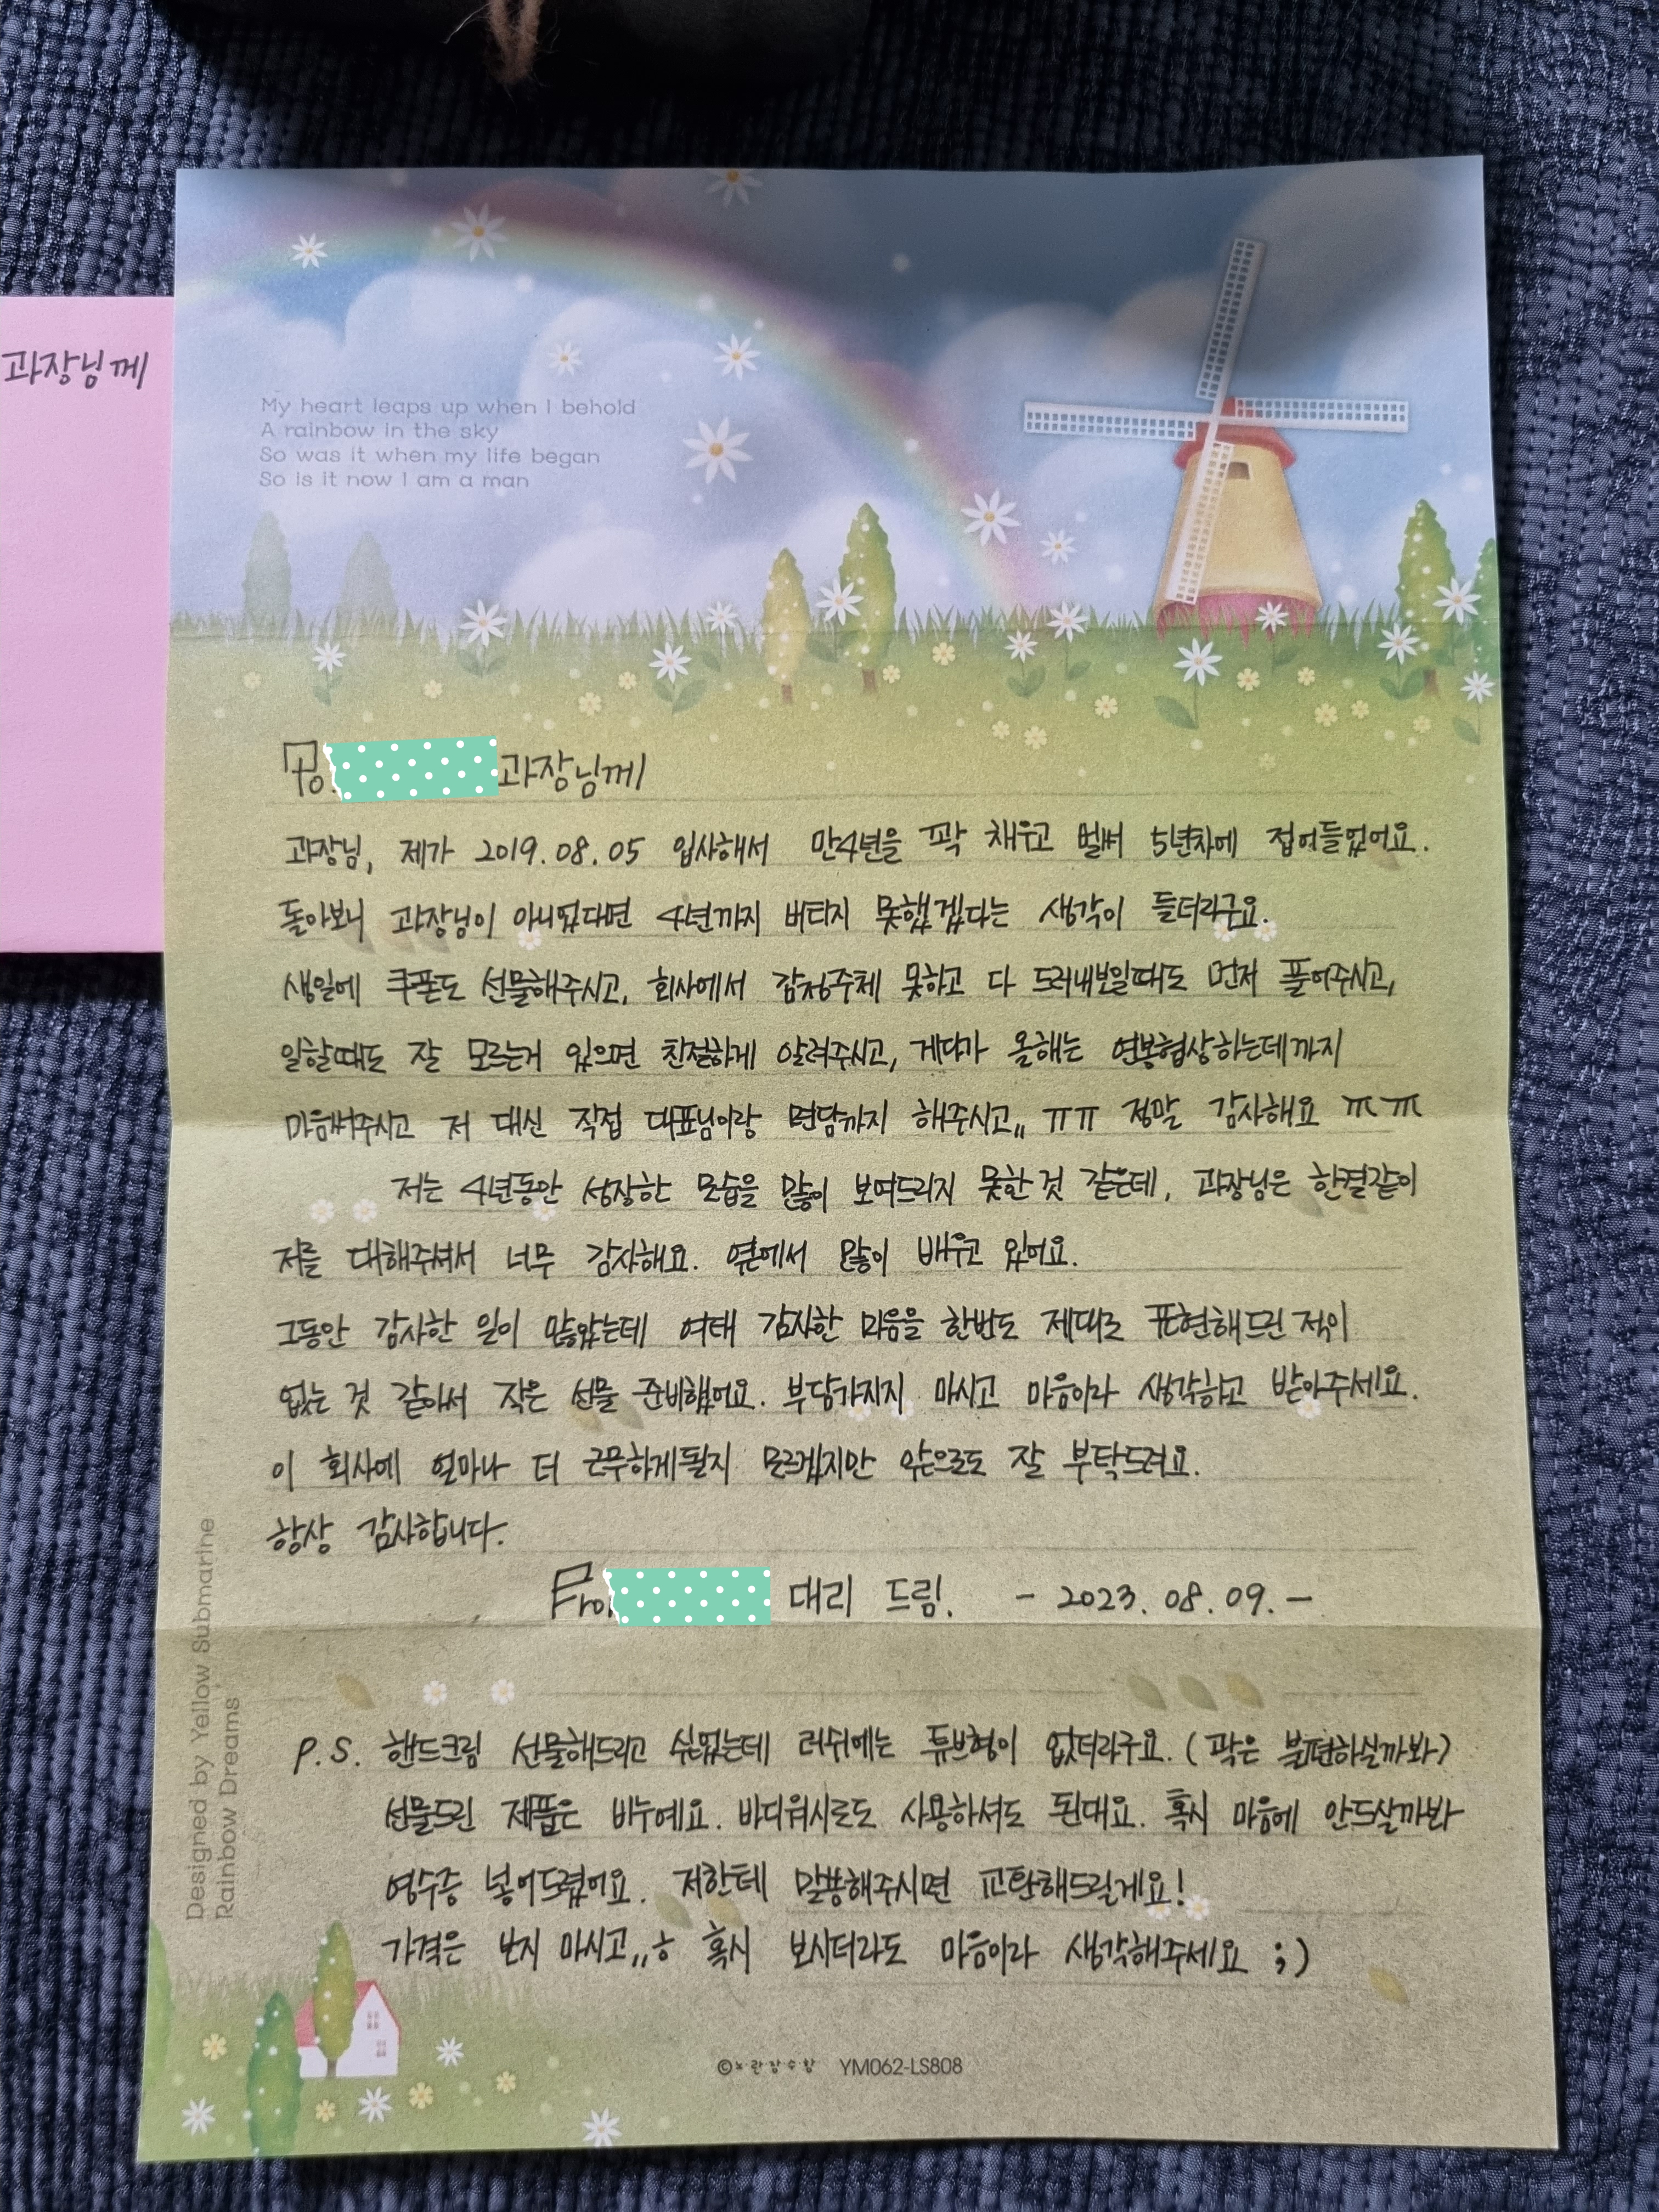 과장님께
My heart leaps up when I behold
A rainbow in the sky
So was it when my life began
So is it now I am a man
To. 과장님께
과장님, 제가 2019.08.05 입사해서 만4년을 꽉 채우고 벌써 5년차에 접어들었어요.
돌아보니 과장님이 아니었다면 4년까지 버티지 못했겠다는 생각이 들더라구요.
생일에 쿠폰도 선물해주시고, 회사에서 감정주체 못하고 다 드러내보일때도 먼저 풀어주시고,
일할때도 잘 모르는거 있으면 친절하게 알려주시고, 게다가 올해는 연봉협상하는데까지
마음써주시고 저 대신 직접 대표님이랑 면담까지 해주시고,, ㅠㅠ 정말 감사해요 ㅠㅠ
저는 4년동안 성장한 모습을 많이 보여드리지 못한 것 같은데, 과장님은 한결같이
저를 대해주셔서 너무 감사해요. 옆에서 많이 배우고 있어요.
그동안 감사한 일이 많았는데 여태 감사한 마음을 한번도 제대로 표현해드린 적이
없는 것 같아서 작은 선물 준비했어요. 부담가지지 마시고 마음이라 생각하고 받아주세요.
이 회사에 얼마나 더 근무하게될지 모르겠지만 앞으로도 잘 부탁드려요.
항상 감사합니다.
From 대리 드림. - 2023.08.09. -
P.S. 핸드크림 선물해드리고 싶었는데 러쉬에는 튜브형이 없더라구요. (곽은 불편하실까봐)
선물드린 제품은 비누예요. 바디워시로도 사용하셔도 된대요. 혹시 마음에 안드실까봐
영수증 넣어드렸어요. 저한테 말씀해주시면 교환해드릴게요!
가격은 보지 마시고,,ㅎ 혹시 보시더라도 마음이라 생각해주세요 ;)
Designed by Yellow Submarine
Rainbow Dreams
©노란잠수함 YM062-LS808